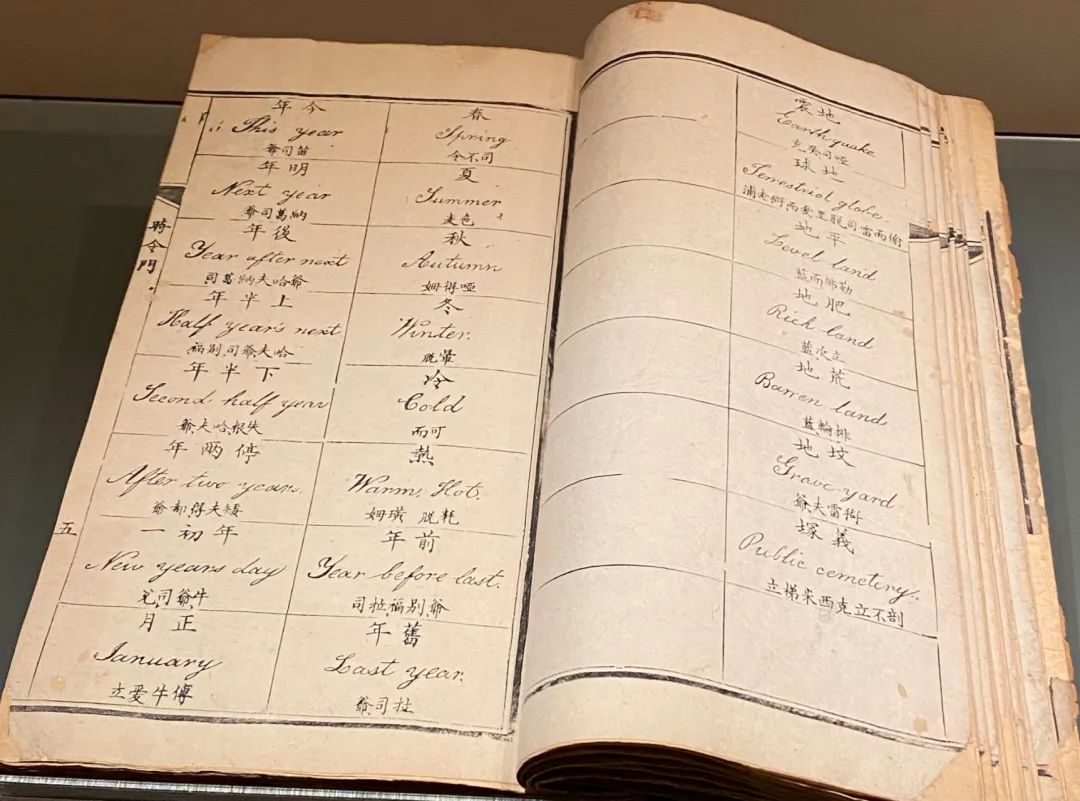 地震
Earthquake
哑司癸克
地球
Terrestrial globe.
平地
Level land
勒佛而藍
肥地
Rich land
立次藍
荒地
Barren land
排輪藍
坟地
Grave yard
雷夫爺
義塚
Public cemetery.
剖不立克西米梯立
春
Spring
司不令
夏
Summer
色麦
秋
Autumn
哑得姆
冬
Winter.
暈脱
冷
Cold
可而
熱
Warm, Hot.
耗脱 璜姆
前年
Year before last.
爺別福拉司
舊年
Last year.
拉司爺
今年
This year
笛司爺
明年
Next year
納葛司爺
後年
Year after next
爺哈夫納葛司
上半年
Half year's next
哈夫爺司別福
下半年
Second half year
失根哈夫爺
停兩年
After two years.
矮夫得都爺
年初一
New years day
牛爺司兌
正月
January
傳牛愛立
時令門
五